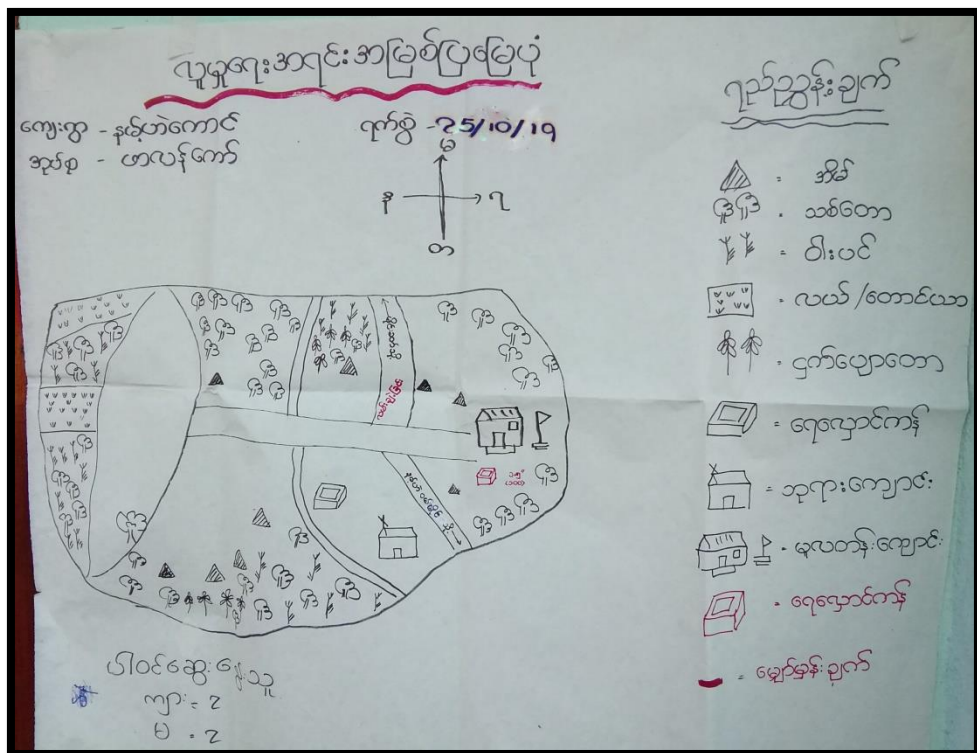 လူမှုရေးအရင်းအမြစ်ပြမြေပုံ
ကျေးရွာ - နမ့်ဟဲကောင်
ရက်စွဲ - 25/10/19
အုပ်စု - ဟာလန်ကော်
မ
န
ရ
တ
ရည်ညွှန်းချက်
= အိမ်
= သစ်တော
= ဝါးပင်
= လယ်/တောင်ယာ
= ငှက်ပျောတော
= ရေလှောင်ကန်
= ဘုရားကျောင်း
= မူလတန်းကျောင်း
= ရေလှောင်ကန်
= မျှော်မှန်းချက်
ပါဝင်ဆွေးနွေးသူ
ကျား = ၇
မ = ၇